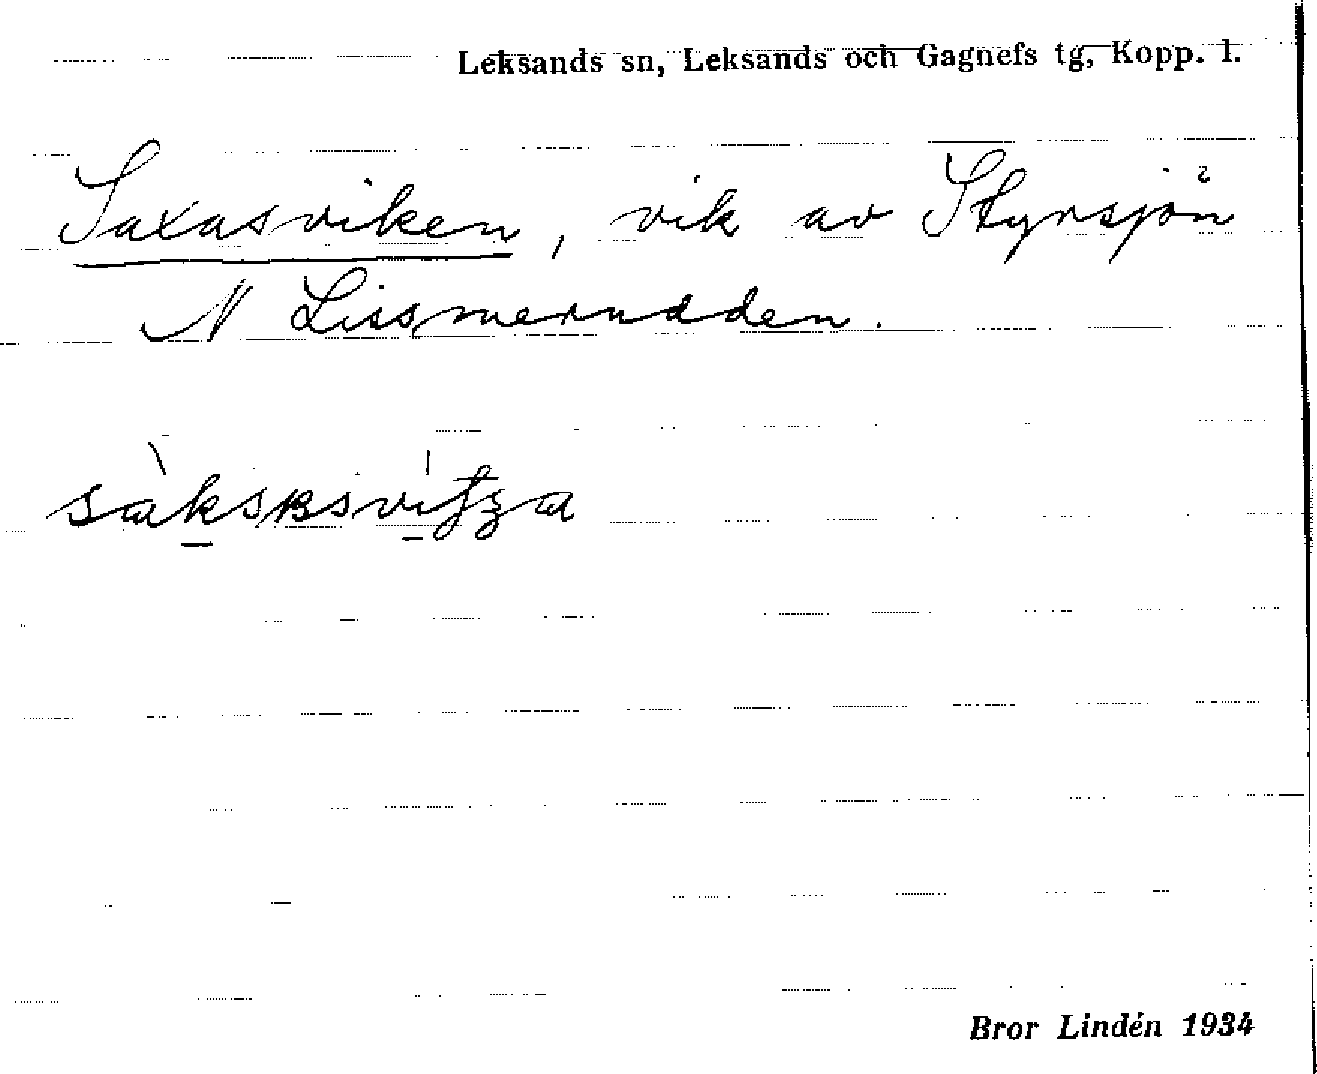 Leksands sn, Leksands och Gagnefs tg, Kopp. l.
Saxasviken, vik av Styrsjön
N Lissmerudden.
Bror Lindén 1934